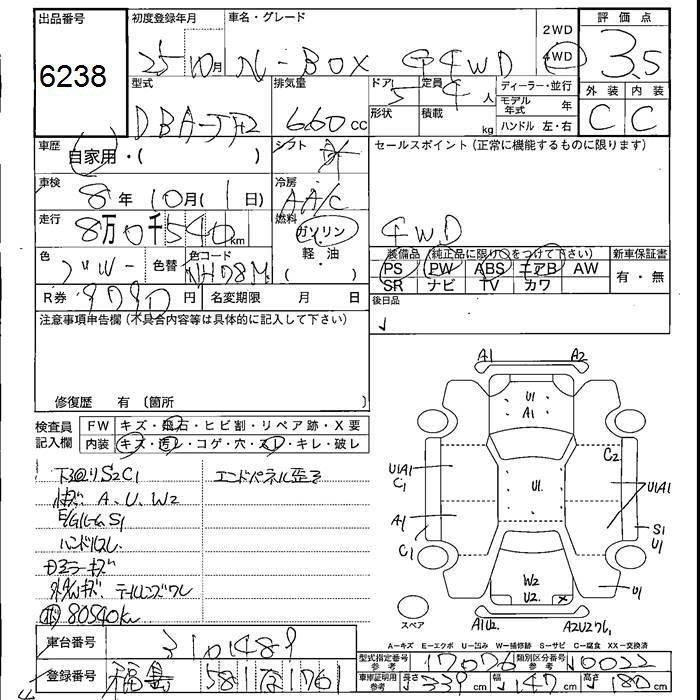 出品番号
6238
初度登録年月
25 10月
車名・グレード
N-BOX G 4WD
2WD
4WD
評価点
3.5
型式
DBA-JF2
排気量
660cc
ドア
5
定員
4人
形状
積載
kg
ディーラー・並行
モデル年式 年
ハンドル 左・右
外装 内装
C C
車歴
自家用・( )
シフト
セールスポイント(正常に機能するものに限ります)
4WD
車検
8年 10月(1日)
冷房
AA/C
走行
8万0千540km
燃料
ガソリン・軽・油
色
色替
色コード
NH78M
装備品(純正品に限り○をつけて下さい)
PS PW ABS エアB AW
SR ナビ TV カワ
新車保証書
有・無
R券 9080円
名変期限 月 日
後日品
注意事項申告欄(不具合内容等は具体的に記入して下さい)
修復歴 有(箇所 )
検査員記入欄
FW キズ・飛石・ヒビ割・リペア跡・X要
内装 キズ・汚レ・コゲ・穴・スレ・キレ・破レ
下廻りS2C1
エンドパネル歪み
A、U、W2
E/GルームS1
ハンドルスレ
ドアミラーキズ
外ダルキズ テールレンズワレ
80540km
A1 A2
U1
A1
C2
U1A1
C1
U1
U1A1
A1
C1
S1
U1
W2
U2
X
U1
スペア
A1U2
A2U2ワレ
A-キズ E-エクボ U-凹み W-補修跡 S-サビ C-腐食 XX-交換済
車台番号
3101489
登録番号
福島 581 1761
型式指定番号参考
17076
類別区分番号参考
0022
車庫証明用参考
長さ 339cm
幅 147cm
高さ 180cm